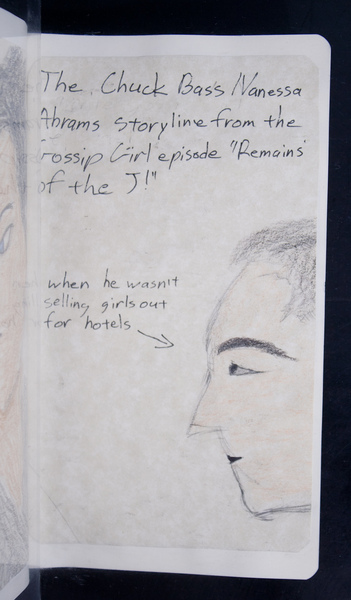 The Chuck Bass/Vanessa
Abrams storyline from the
Gossip Girl episode "Remains
of the J!"
when he wasn't
selling girls out
for hotels